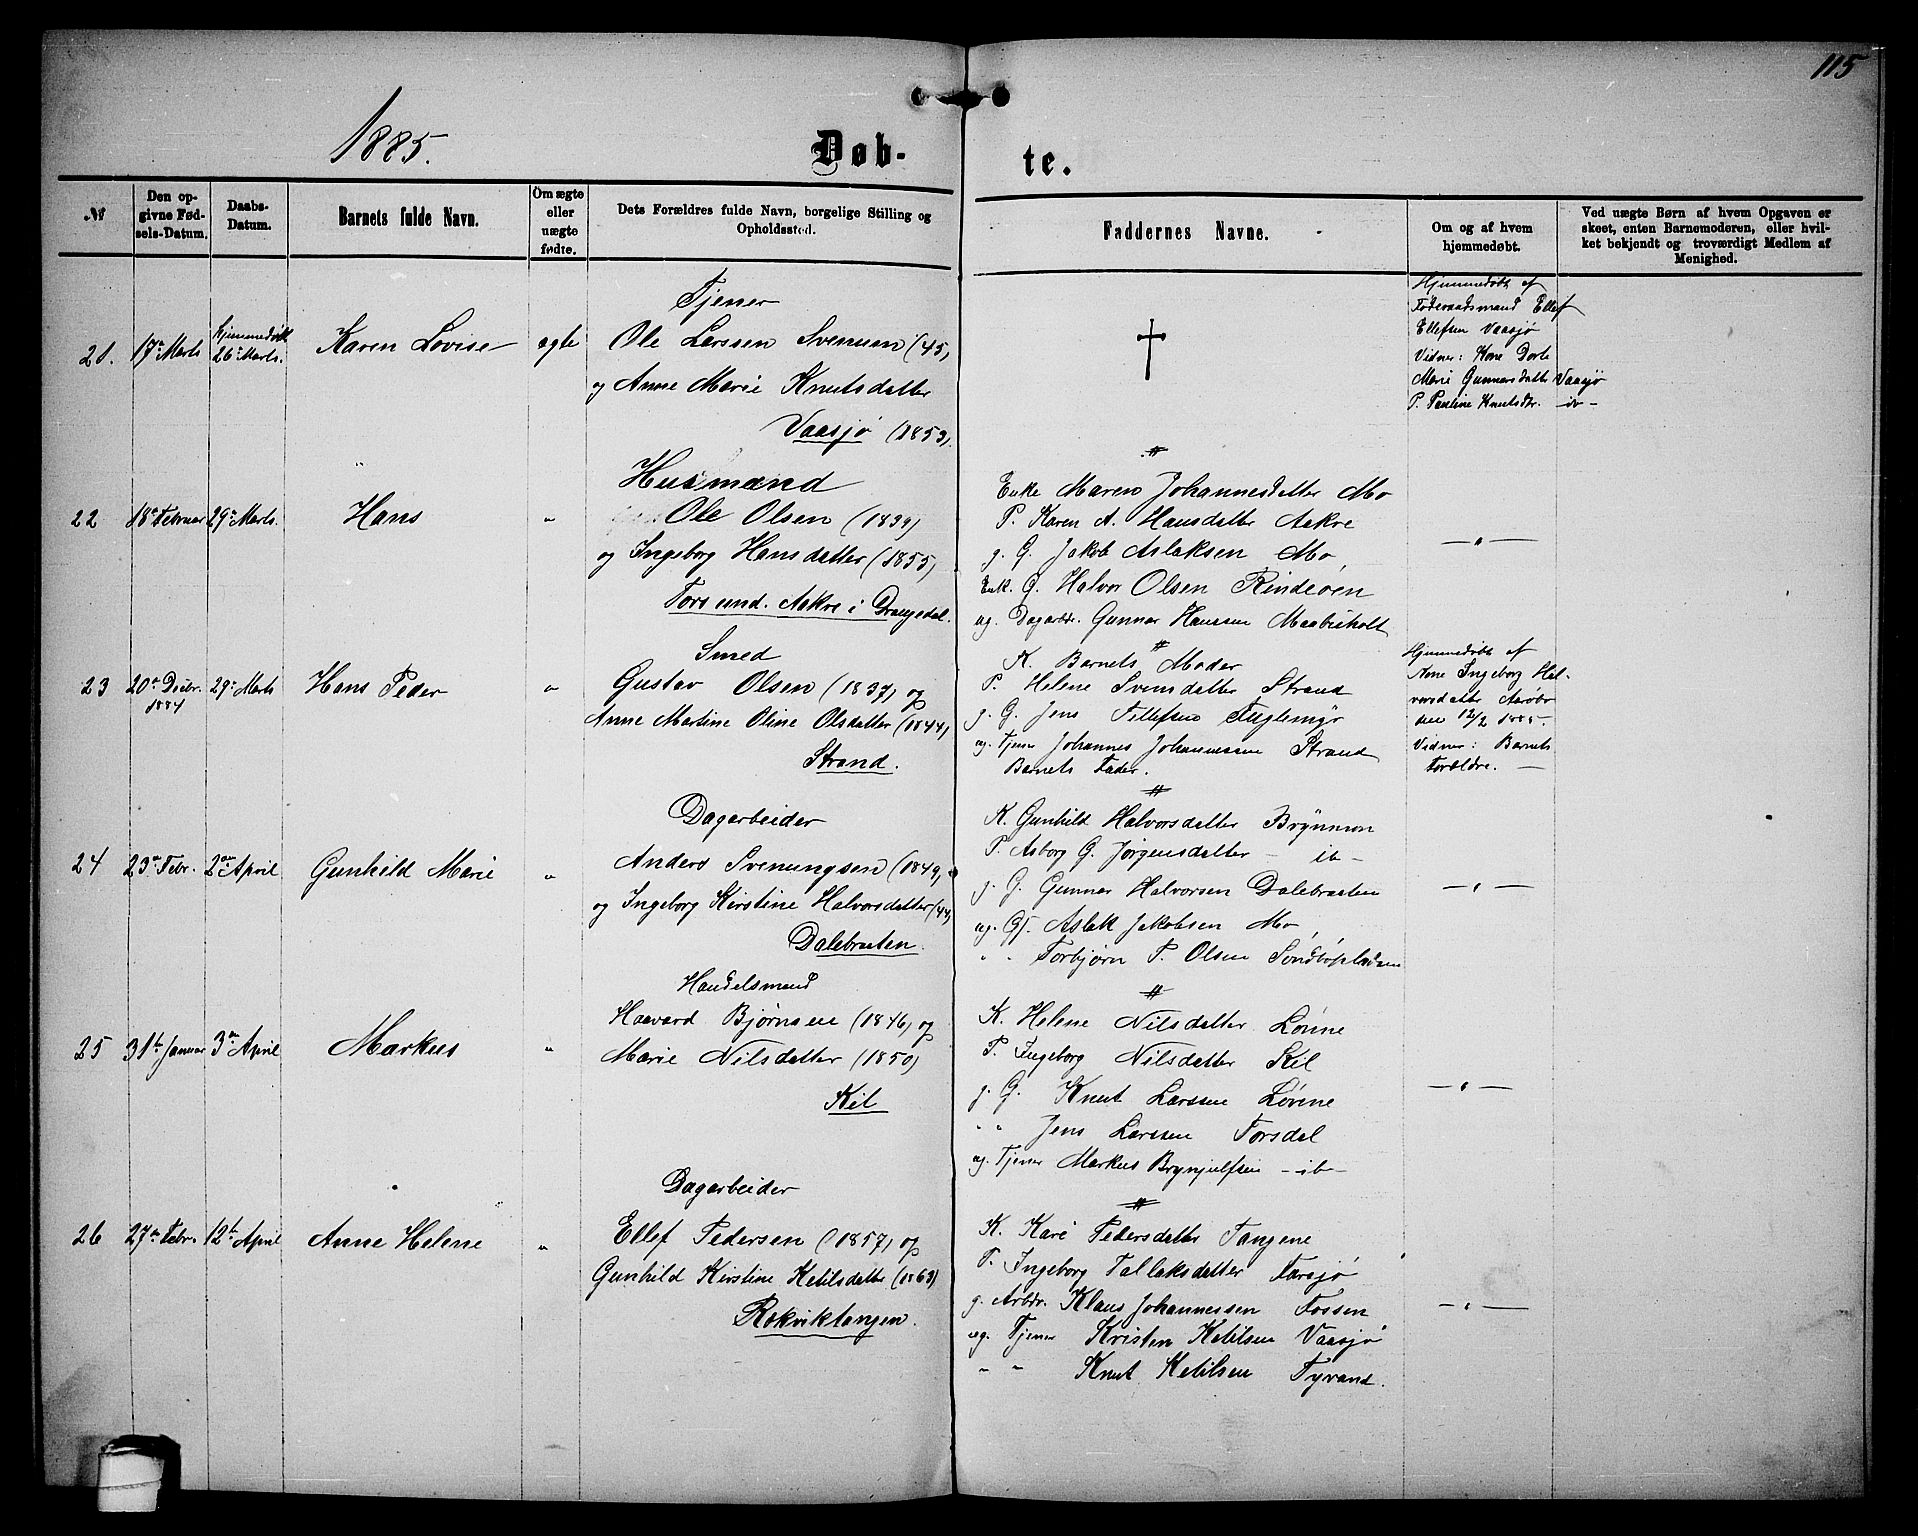 115
1885.
Døb- te.
№
Den op-
givne Fød-
sels-Datum.
Daabs-
Datum.
Barnets fulde Navn.
Om ægte
eller
uægte
fødte.
Dets Forældres fulde Navn, borgelige Stilling og
Opholdssted.
Faddernes Navne.
Om og af hvem
hjemmedøbt.
Ved uægte Børn af hvem Opgaven er
skeet, enten Barnemoderen, eller hvil-
ket bekjendt og troværdigt Medlem af
Menighed.
21.
17de Marts
Hjemmedøbt
26de Marts.
Karen Lovise
ægte
Tjener
Ole Larssen Svenum (45)
og Anne Marie Knutsdatter
Vaasjø (1853)
†
Hjemmedøbt af
Føderaadsmand Ellef
Ellefsen Vaasjø
Vidner: Kone Dorte
Marie Gunnarsdatter Vaasjø
P. Pauline Knutsdtr. - ib -
22
18de Februar
29de Marts.
Hans
"
Husmand
Ole Olsen (1839)
og Ingeborg Hansdatter (1855)
Fors und. Aakre i Drangedal.
Enke Maren Johannesdatter Mo
P. Karen A. Hansdatter Aakre
g. G. Jakob Aslaksen Mo
Enk. G. Halvor Olsen
ug. Dagarbdr. Gunnar Hanssen
— " —
23
20de Decbr.
1884
29de Marts
Hans Peder
"
Smed
Gustav Olsen (1837) og
Anne Martine Oline Olsdatter (1844)
Strand.
K. Barnets Moder
P. Helene Svensdatter Strand
g. G. Jens Tellefsen Fuglemyr
ug. Tjener Johannes Johannessen Strand
Barnets Fader.
Hjemmedøbt af
Anne Ingeborg Hal-
vorsdatter Aarøbo
den 12/2 1885.
Vidner: Barnets
Forældre. —
24
23de Febr.
2den April
Gunhild Marie
"
Dagarbeider
Anders Svenungsen (1849)
og Ingeborg Kirstine Halvorsdatter (44)
Dalebraaten.
K. Gunhild Halvorsdatter Brynmon
P. Asborg G. Jørgensdatter - ib -
g. G. Gunnar Halvorsen Dalebraaten
ug. Gf. Aslak Jakobsen Mo
" " Torbjørn P. Olsen
— " —
25
31te Januar
3die April
Markus
"
Handelsmand
Haavard Bjørnsen (1846) og
Marie Nilsdatter (1850)
Kil
K. Helene Nilsdatter Lønne
P. Ingeborg Nilsdatter Kil
g. G. Knut Larssen Lønne
" " Jens Larssen Torsdal
ug. Tjener Markus Brynjulfsen - ib -
— " —
26
27de Febr.
12te April
Anne Helene
"
Dagarbeider
Ellef Pedersen (1857) og
Gunhild Kirstine Ketilsdatter (1863)
Rokviktangen.
K. Kari Pedersdatter Tangene
P. Ingeborg Tallaksdatter Farsjø
g. Arbdr. Klaus Johannessen Fossen
ug. Tjener Kristen Ketilsen Vaasjø
" " Knut Ketilsen Tyvand.
— " —